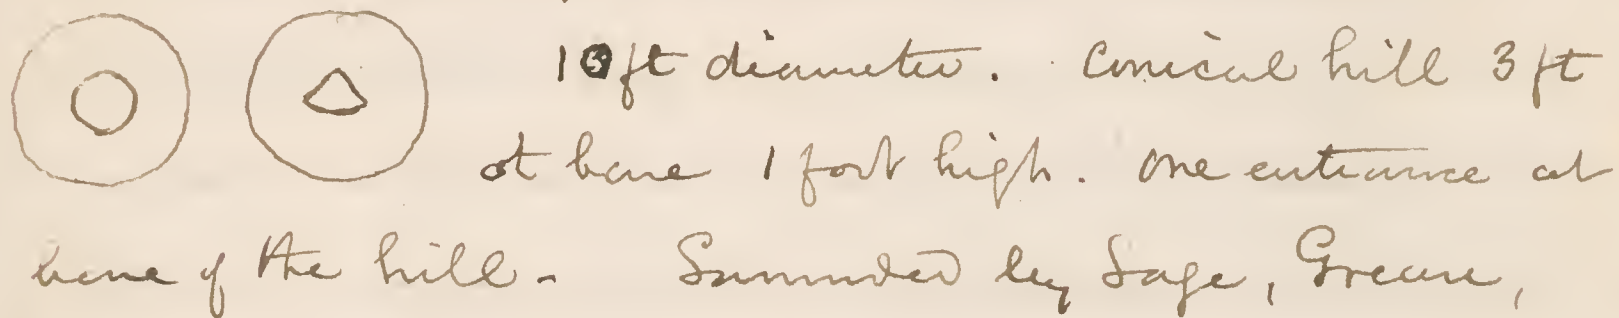 10 ft diameter. Conical hill 3 ft
at base 1 foot high. One entrance at
base of the hill. Surrounded by Sage, Grease,